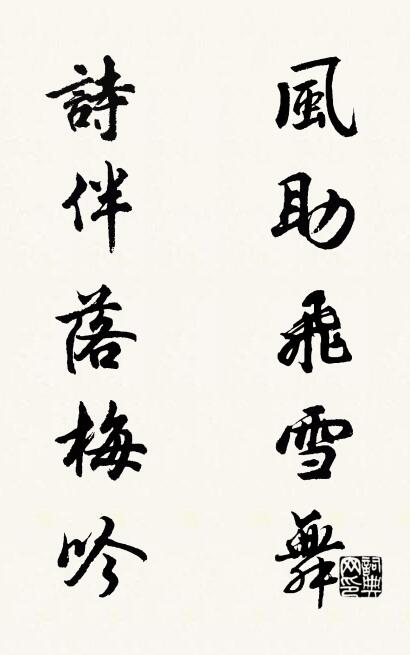 風助飛雪舞
詩伴落梅吟
詞典網印